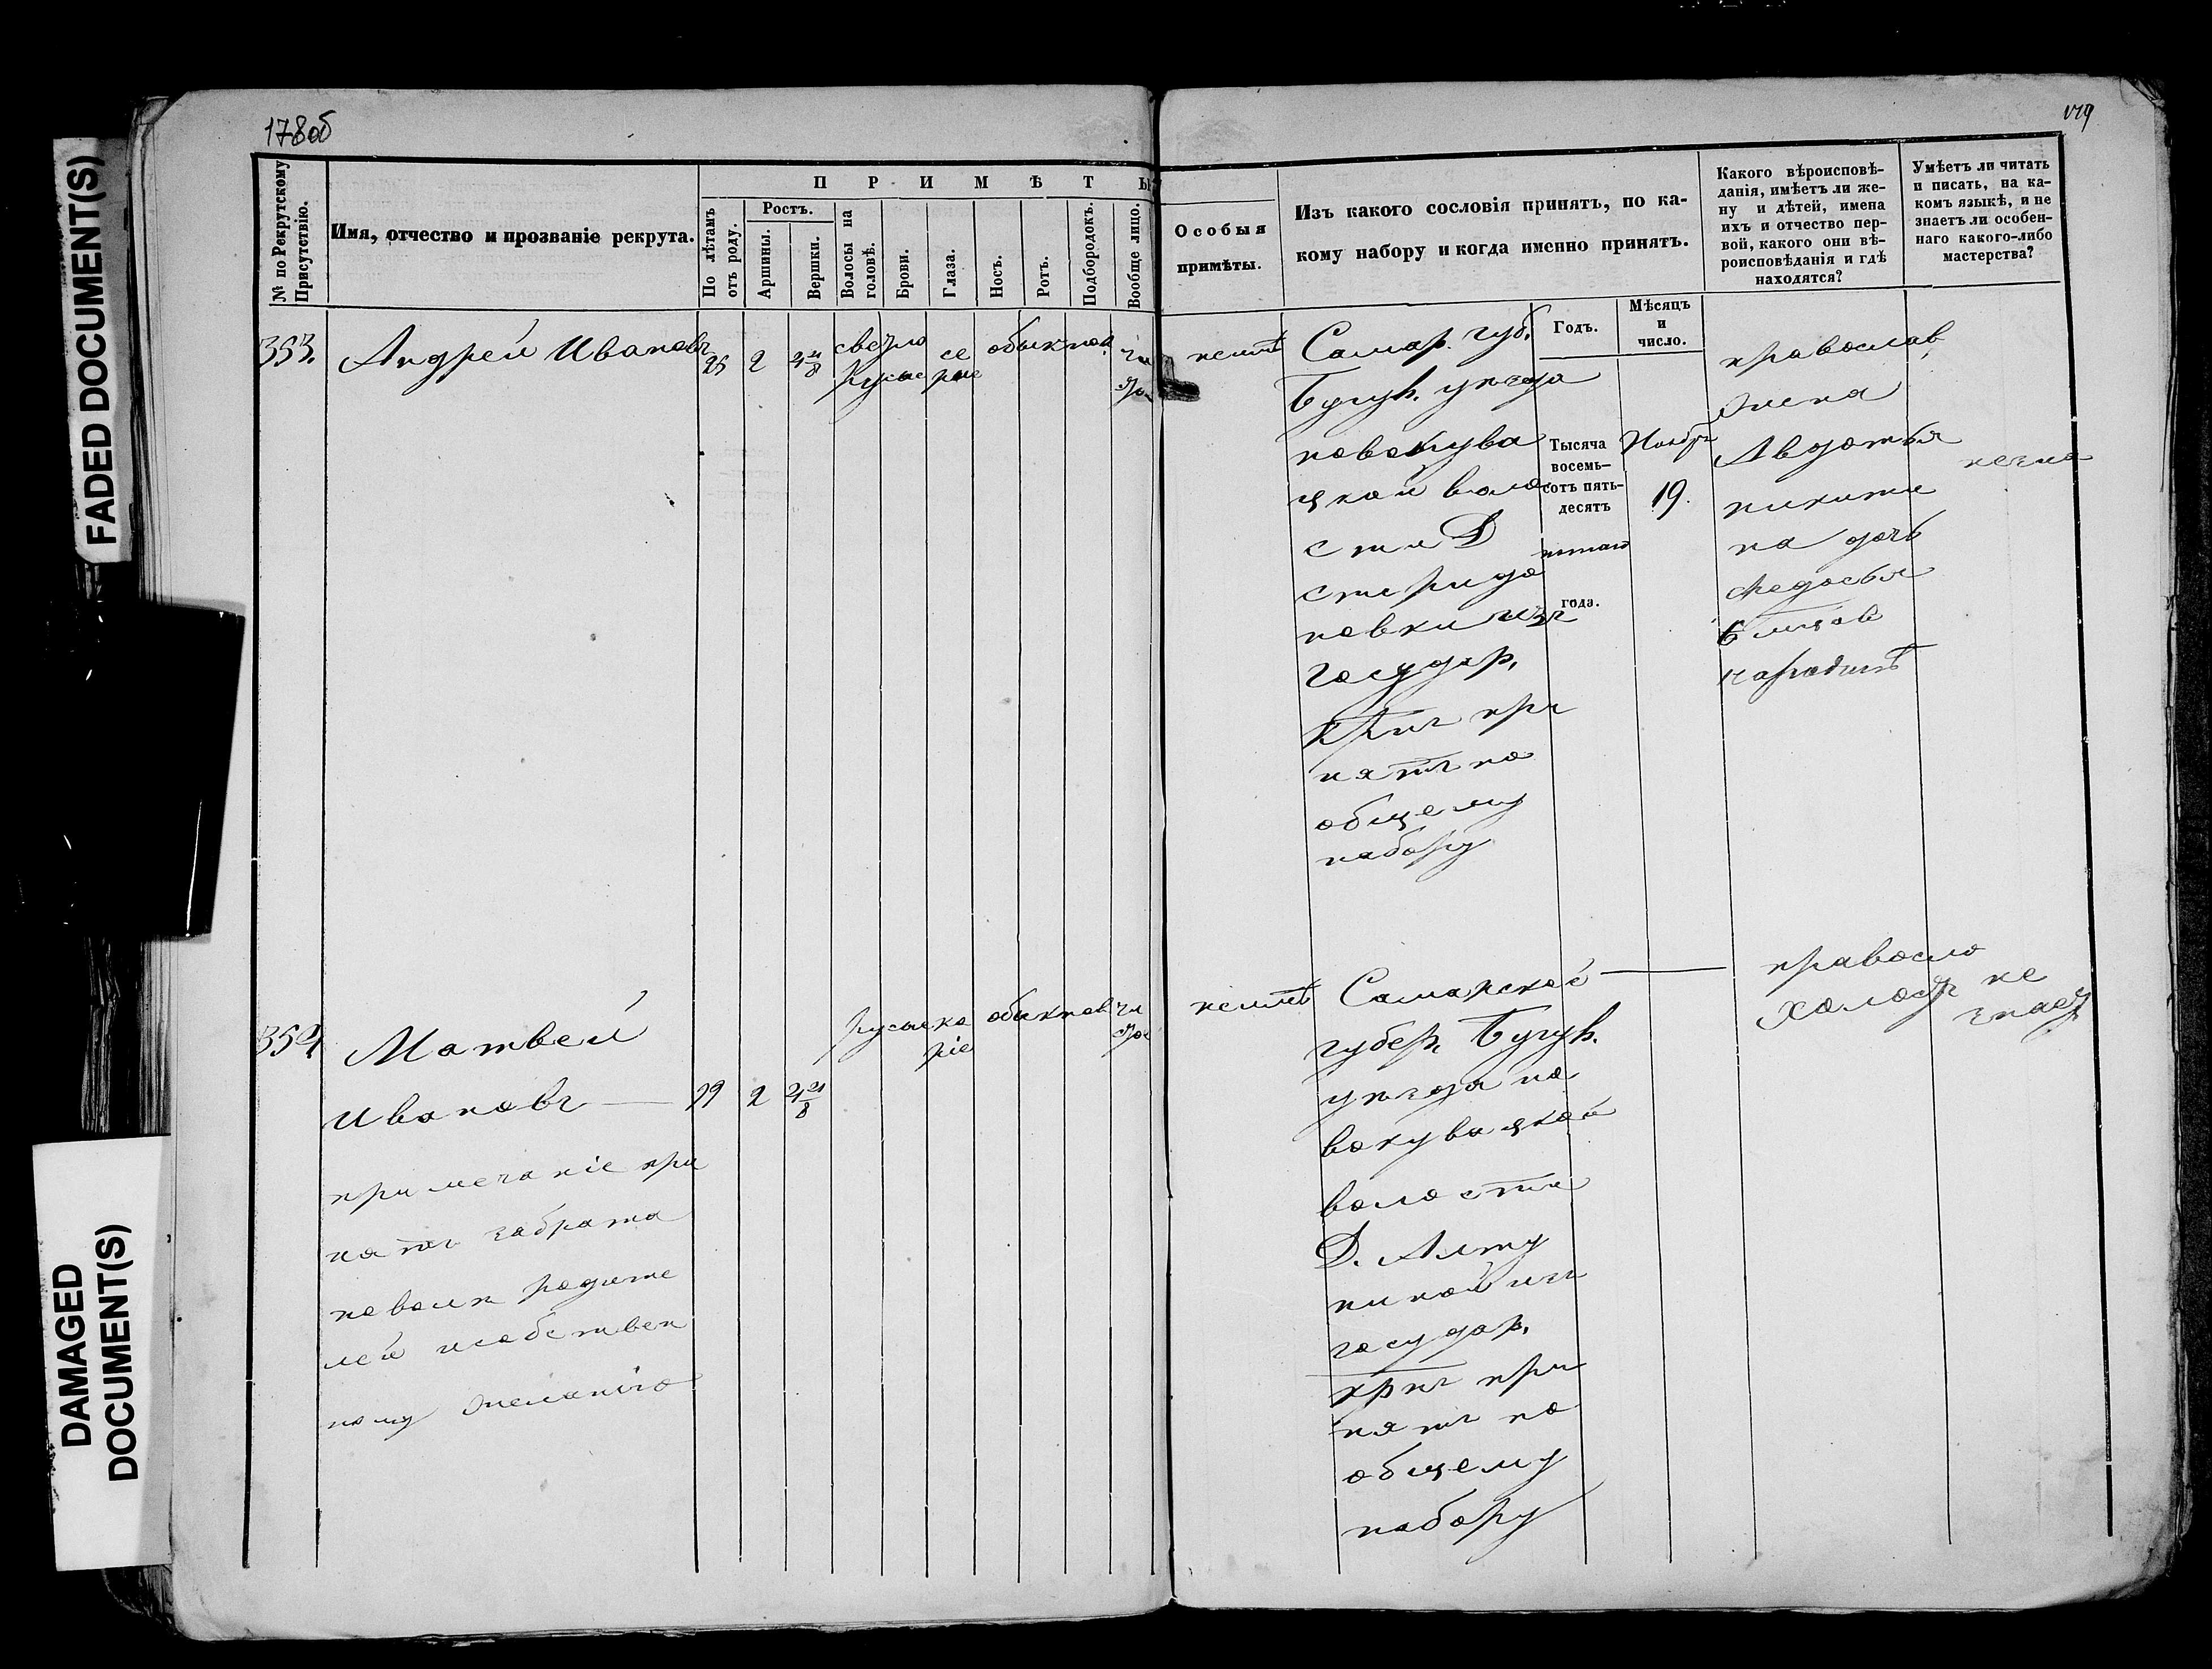 178об
179
FADED DOCUMENT(S)
DAMAGED
DOCUMENT(S)
№ по Рекрутскому
Присутствію.
Имя, отчество и прозваніе рекрута.
П Р И М Ѣ Т Ы
По лѣтамъ
отъ роду.
Ростъ.
Аршины.
Вершки.
Волосы на
головѣ.
Брови.
Глаза.
Носъ.
Ротъ.
Подбородокъ.
Вообще лицо.
Особыя
примѣты.
Изъ какого сословія принятъ, по ка-
кому набору и когда именно принятъ.
Какого вѣроисповѣ-
данія, имѣетъ ли же-
ну и дѣтей, имена
ихъ и отчество пер-
вой, какого они вѣ-
роисповѣданія и гдѣ
находятся?
Умѣетъ ли читать
и писать, на ка-
комъ языкѣ, и не
знаетъ ли особен-
наго какого-либо
мастерства?
Годъ.
Мѣсяцъ
и
число.
353.
Андрей Ивановъ
25
2
4 4/8
светло
русые
се
рые
обыкнов.
чи
стое
неимѣ
Самар. губ.
Бугур. уѣзда
новокува
цкой воло
сти Д
изъ
государ.
кр при
нятъ по
общему
набору
Тысяча
восемь-
сотъ пять-
десятъ
пятаго
года.
Ноябр
19.
православ
жена
Авдотья
никити
на дочь
Федосья
354
Матвей
Ивановъ
2
4 4/8
русые
ка
ріе
обыкнов
чи
стое
примечаніе при
нятъ за брата
по воли родите
лей и собствен
ному желанію
неимѣ
Самарской
губер. Бугур.
уѣзда но
вокувацкой
волости
Д.
государ.
при
нятъ по
общему
набору
правосла
холостъ
не
знает